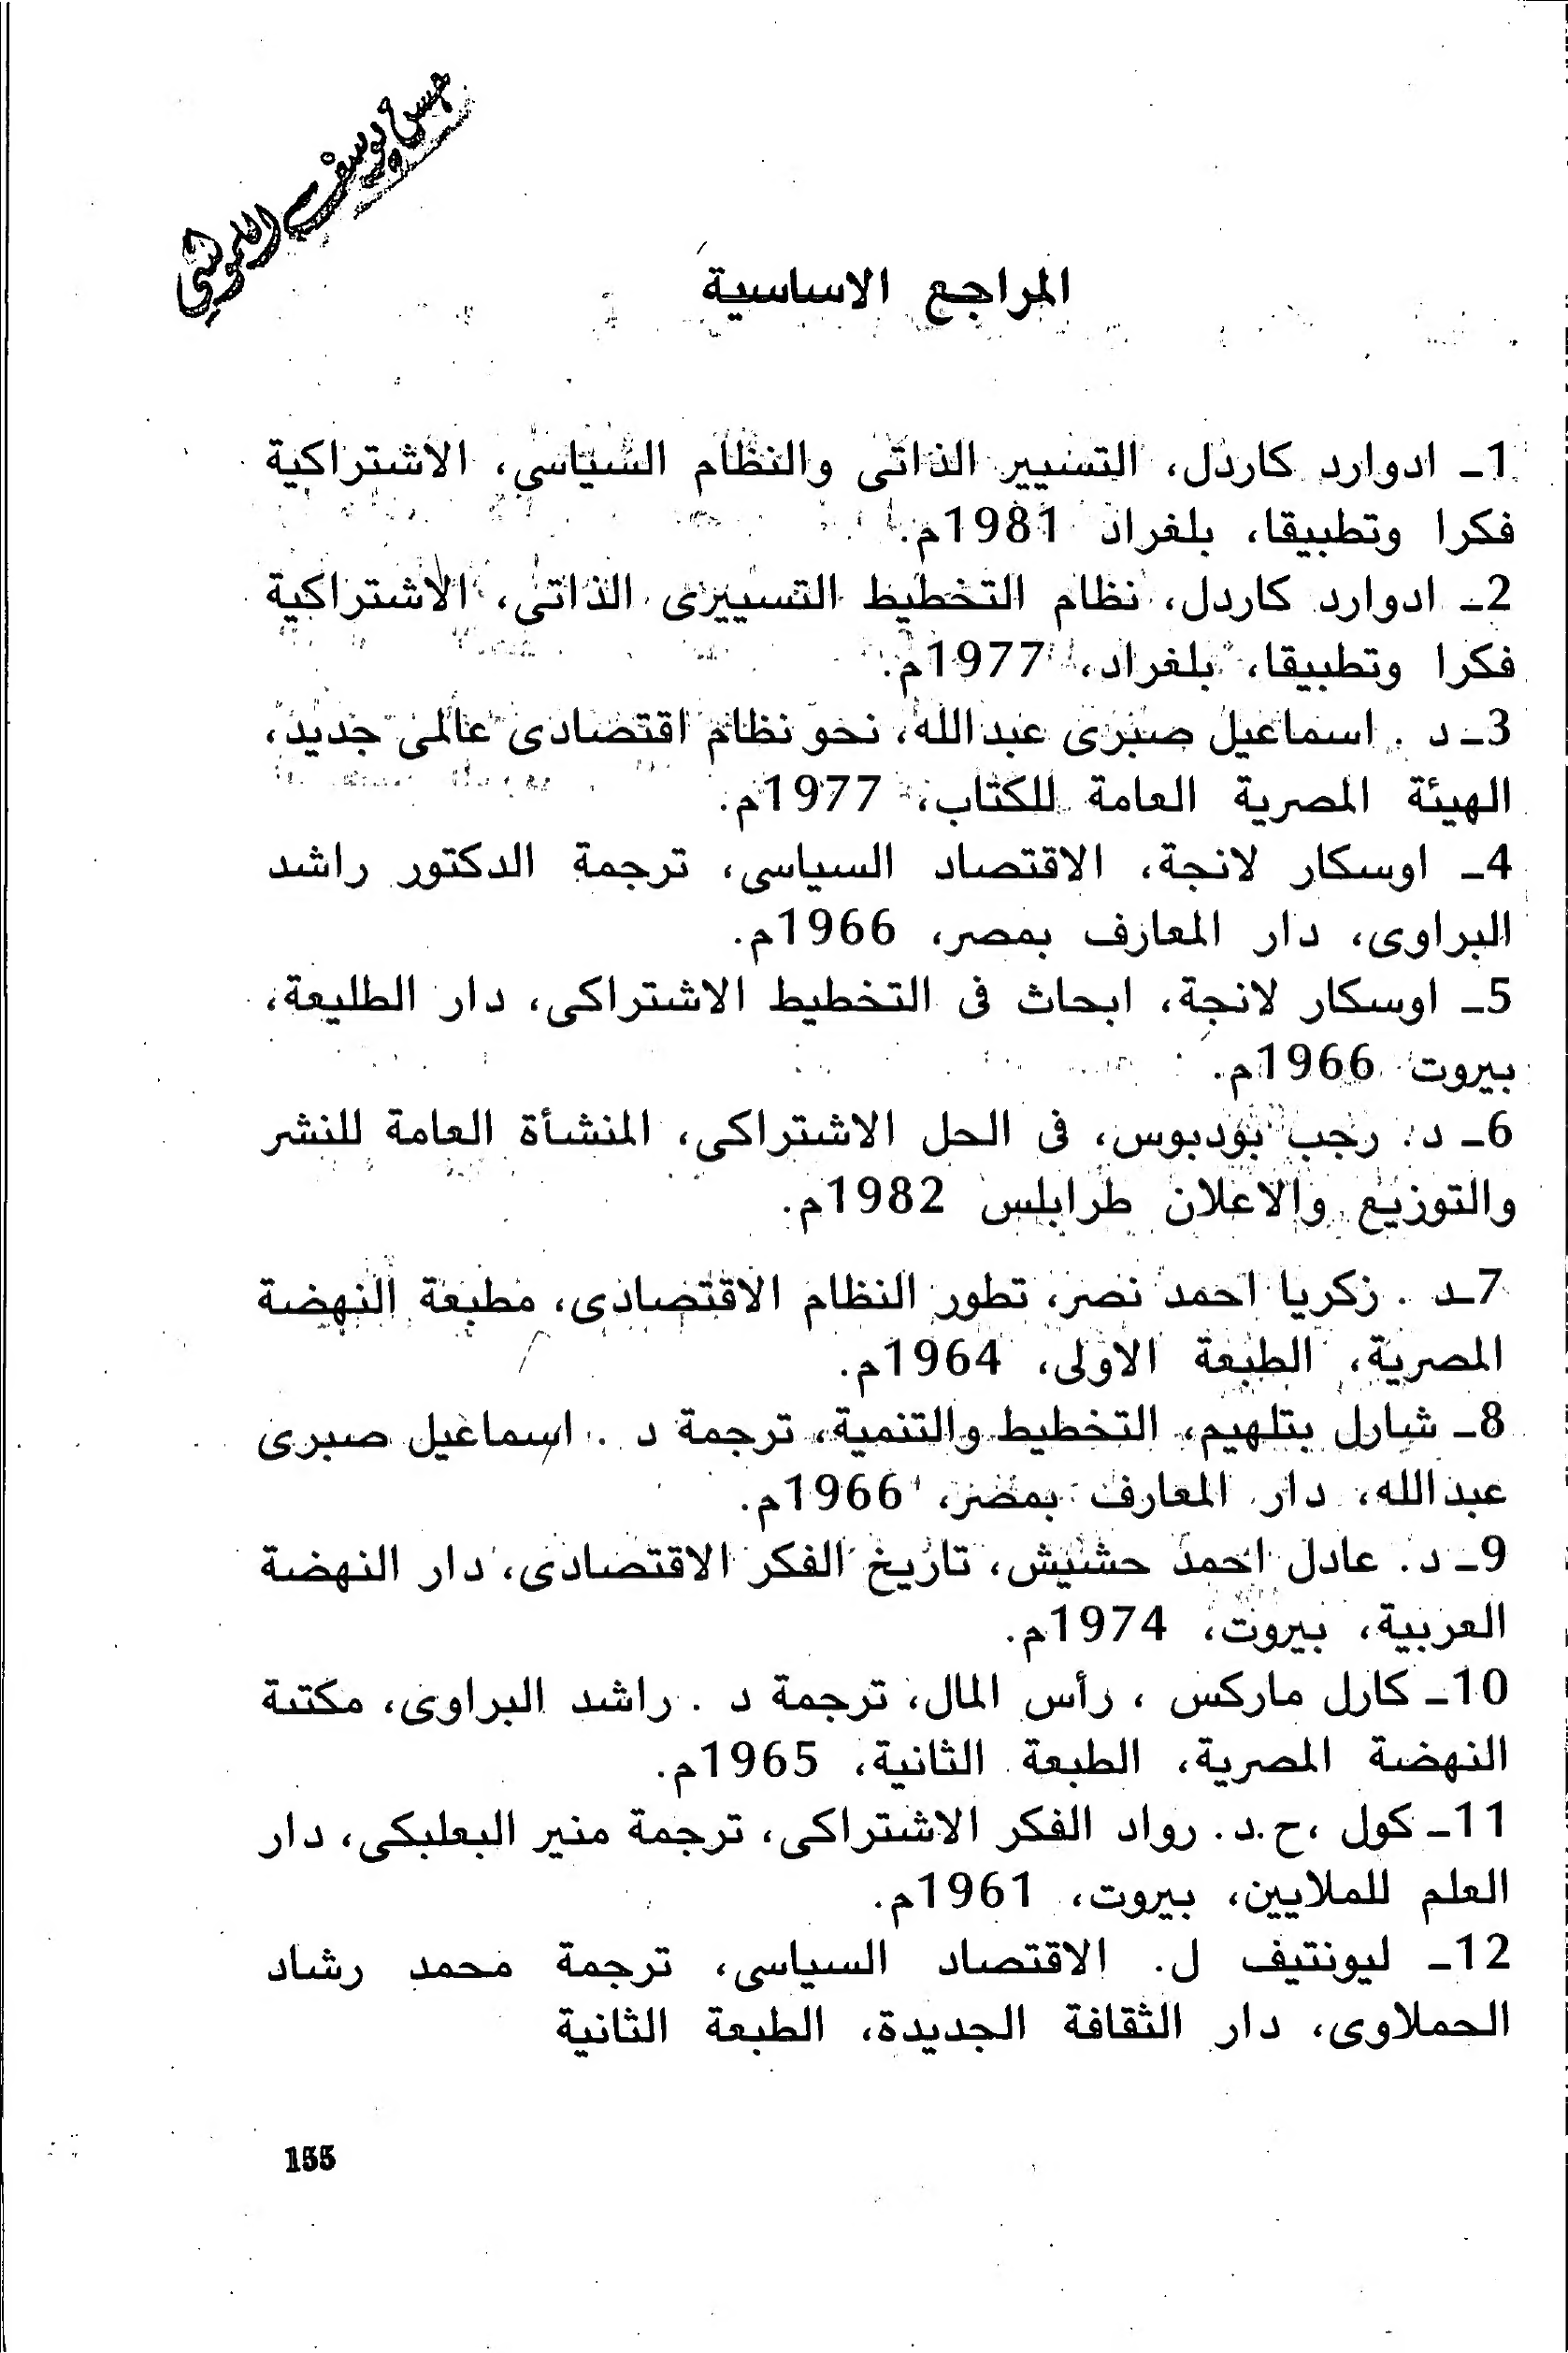 المراجع الاساسية
1ـ ادوارد كاردل، التسيير الذاتى والنظام السياسى، الاشتراكية
فكرا وتطبيقا، بلغراد 1981م.
2ـ ادوارد كاردل، نظام التخطيط التسييرى الذاتى، الاشتراكية
فكرا وتطبيقا، بلغراد، 1977م.
3ـ د . اسماعيل صبرى عبدالله، نحو نظام اقتصادى عالمى جديد،
الهيئة المصرية العامة للكتاب، 1977م.
4ـ اوسكار لانجة، الاقتصاد السياسى، ترجمة الدكتور راشد
البراوى، دار المعارف بمصر، 1966م.
5ـ اوسكار لانجة، ابحاث فى التخطيط الاشتراكى، دار الطليعة،
بيروت 1966م.
6ـ د. رجب بودبوس، فى الحل الاشتراكى، المنشأة العامة للنشر
والتوزيع والاعلان طرابلس 1982م.
7ـد . زكريا احمد نصر، تطور النظام الاقتصادى، مطبعة النهضة
المصرية، الطبعة الاولى، 1964م.
8ـ شارل بتلهيم، التخطيط والتنمية، ترجمة د . اسماعيل صبرى
عبدالله، دار المعارف بمصر، 1966م.
9ـ د. عادل احمد حشيش، تاريخ الفكر الاقتصادى، دار النهضة
العربية، بيروت، 1974م.
10ـ كارل ماركس ، رأس المال، ترجمة د . راشد البراوى، مكتبة
النهضة المصرية، الطبعة الثانية، 1965م.
11ـ كول ،ح.د. رواد الفكر الاشتراكى، ترجمة منير البعلبكى، دار
العلم للملايين، بيروت، 1961م.
12ـ ليونتيف ل. الاقتصاد السياسى، ترجمة محمد رشاد
الحملاوى، دار الثقافة الجديدة، الطبعة الثانية
155